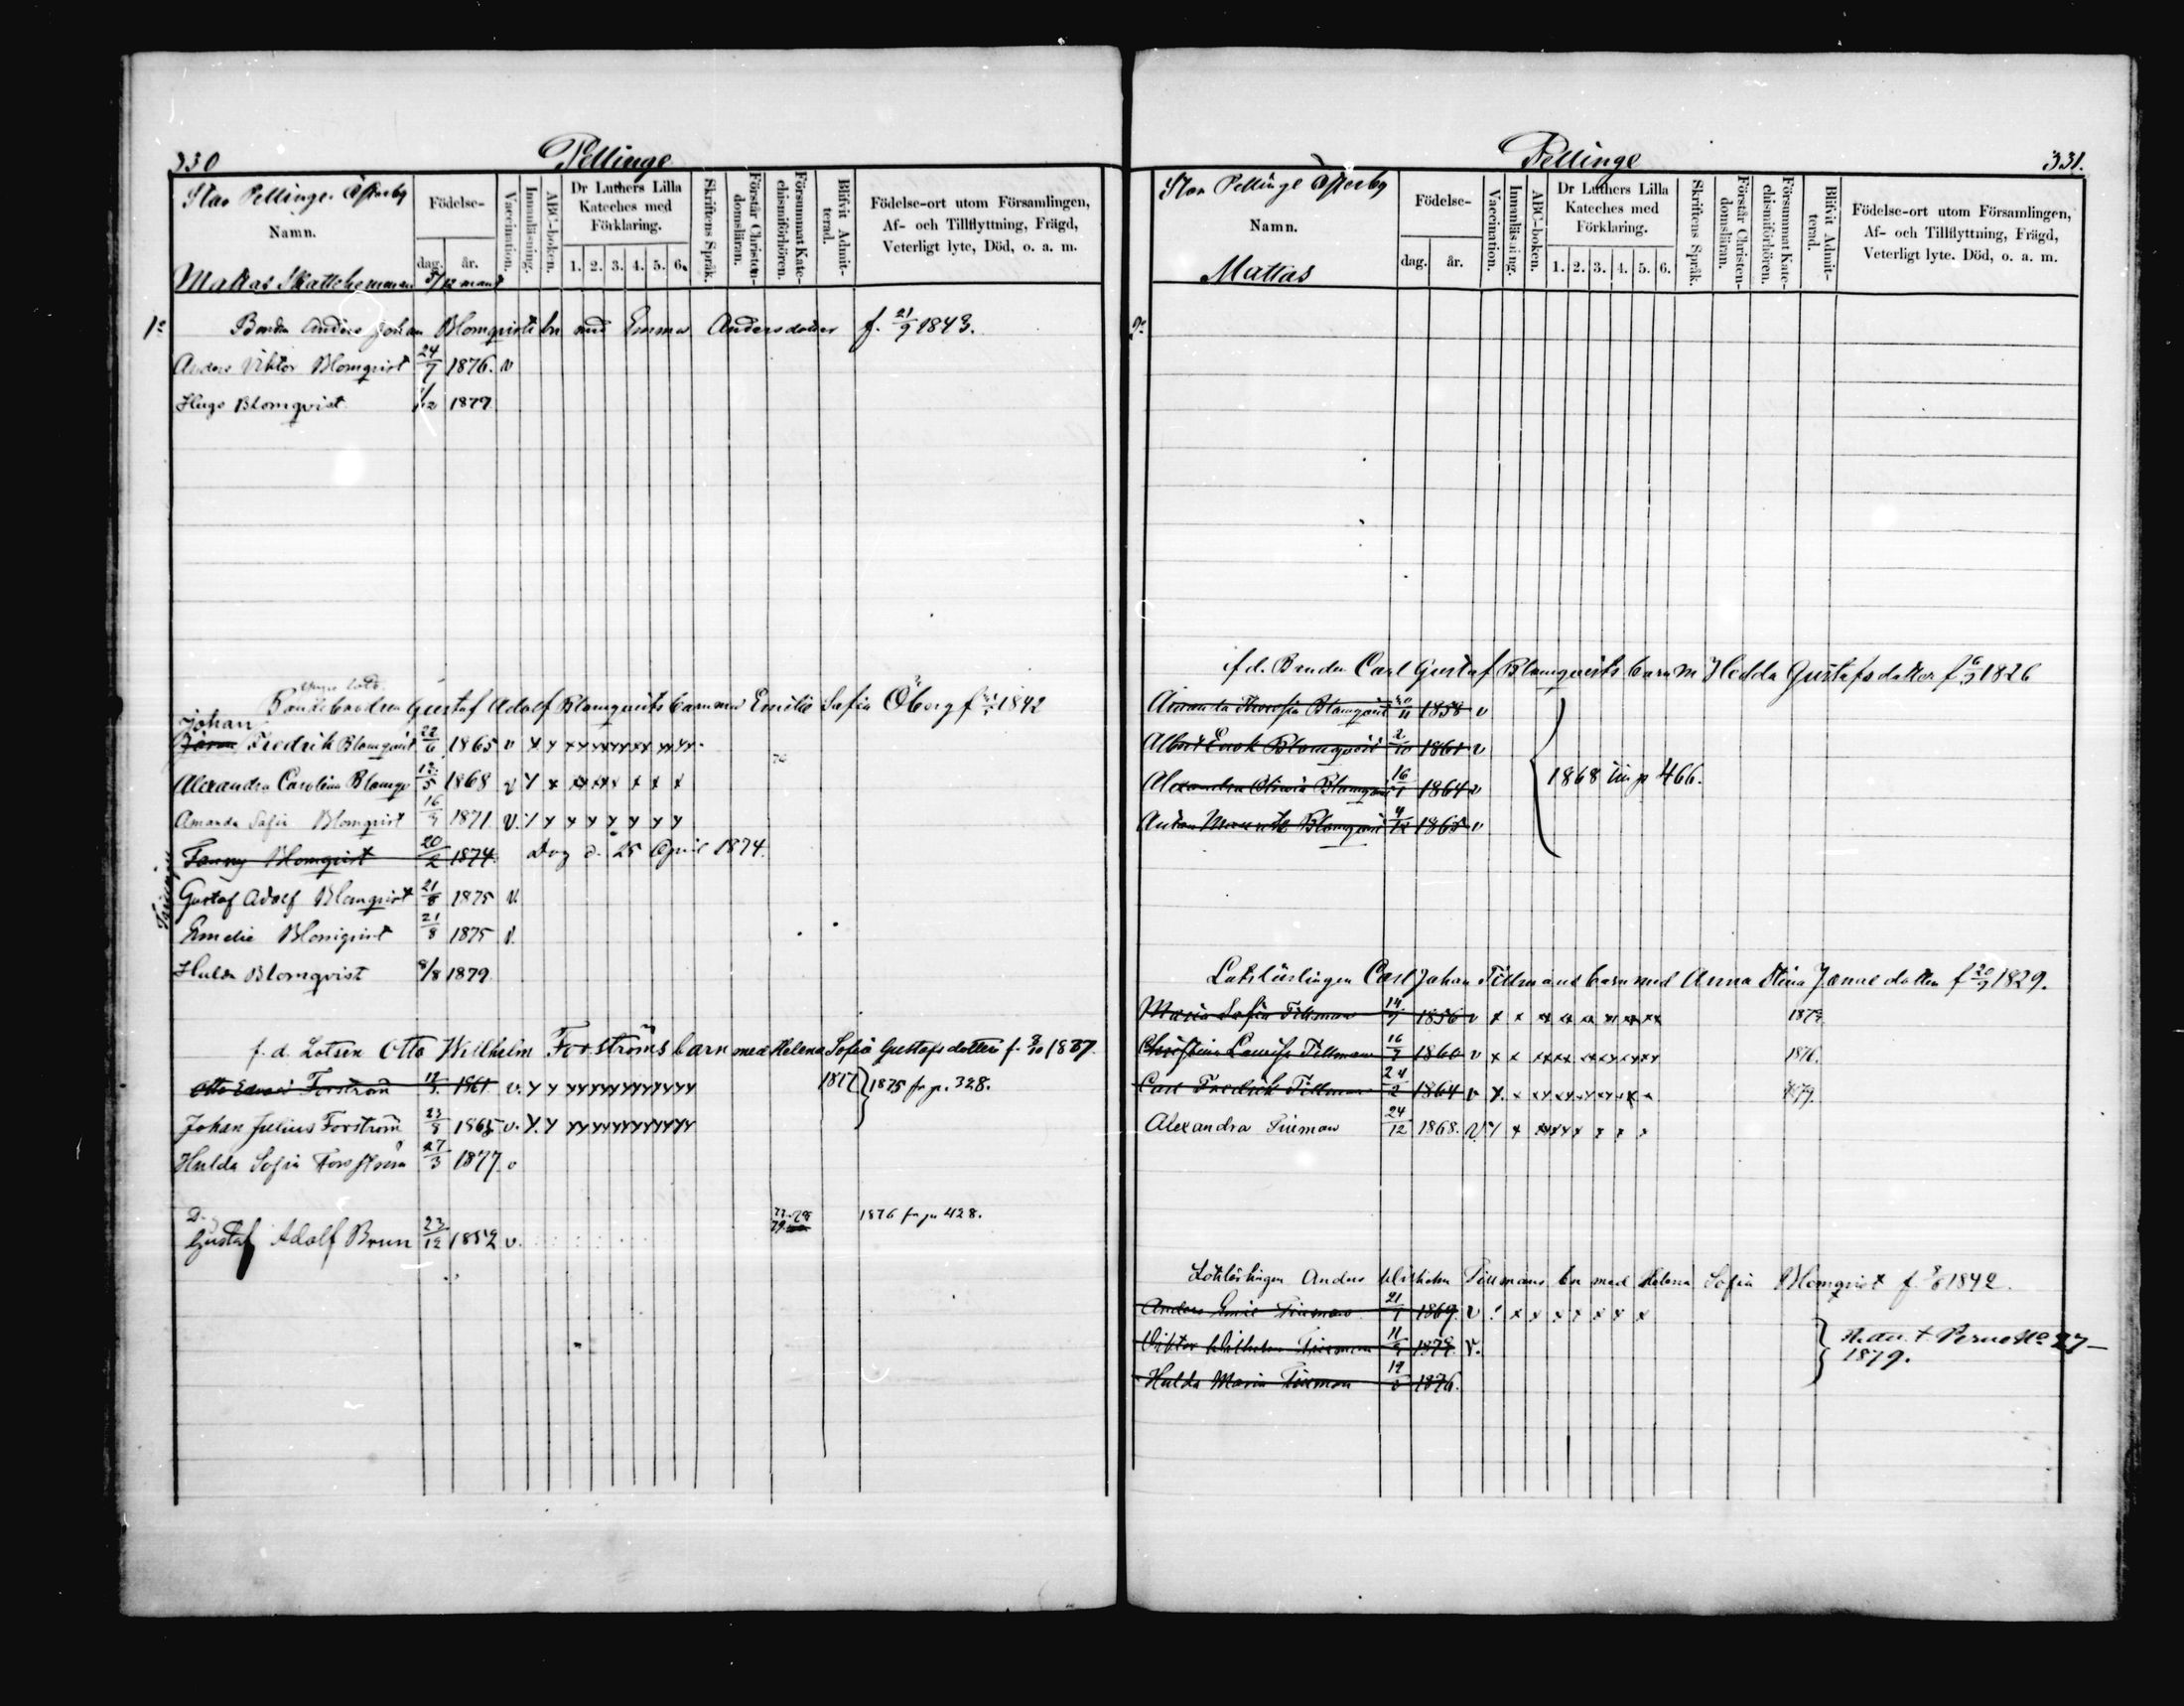 330
Pellinge
Stor Pellinge Österby
Namn.
Mattas Skattehemman 5/12 mant
Födelse-
dag. år.
Vaccination.
Innanläsning.
ABC-boken.
Dr Luthers Lilla
Kateches med
Förklaring.
1. 2. 3. 4. 5. 6.
Skriftens Språk.
Förstår Christen-
domsläran.
Försummat Kate-
chismiförhören.
Blifvit Admit-
terad.
Födelse-ort utom Församlingen,
Af- och Tillflyttning, Frägd,
Veterligt lyte, Död, o. a. m.
Bonden Anders Johan Blomqvists bn med Emma Andersdotter f. 21/9 1843.
Anders Viktor Blomqvist 24/7 1876. v
Hugo Blomqvist 1/12 1879
Gustaf Adolf Blomqvists barn med Emilie Sofia Öberg f 1842
Johan
Fredrik Blomqvist 22/6 1865 v
Alexandra Carolina Blomqv 12/5 1868 v
Amanda Sofia Blomqvist 16/4 1871 v
Fanny Blomqvist 20/2 1874 Dog d. 25 April 1874.
Gustaf Adolf Blomqvist 21/8 1875 v
Emelie Blomqvist 21/8 1875 v.
Hulda Blomqvist 8/8 1879
f. d. Lotsen Otto Wilhelm Forströms barn med Helena Sofia Gustafsdotter f. 2/10 1837.
Otto Edvard Forström 1861 v. 1877 1875 fr p. 328.
Johan Julius Forström 23/8 1865 v.
Hulda Sofia Forström 27/3 1877 v
Gustaf Adolf Brun 23/12 1852 v. 1876 fr p 428.
Pellinge
331.
Stor Pellinge Österby
Namn.
Mattas
Födelse-
dag. år.
Vaccination.
Innanläsning.
ABC-boken.
Dr Luthers Lilla
Kateches med
Förklaring.
1. 2. 3. 4. 5. 6.
Skriftens Språk.
Förstår Christen-
domsläran.
Försummat Kate-
chismiförhören.
Blifvit Admit-
terad.
Födelse-ort utom Församlingen,
Af- och Tillflyttning, Frägd,
Veterligt lyte. Död, o. a. m.
f d. Bonden Carl Gustaf Blomqvists barn m Hedda Gustafsdotter f 1826
Amanda Blomqvist 30/11 1858 v
Albert Enok Blomqvist 2/10 1861 v
Alexandra Olivia Blomqvist 16/1 1864 v
Anton Mauritz Blomqvist 4/12 1865 v
1868 till p 466.
Lotslärlingen Carl Johan Tillmans barn med Anna Stina Jannedotter f 20/9 1829.
Maria Sofia Tillman 14/9 1856 v 1873
Christina Lovisa Tillman 16/7 1860 v 1876.
Carl Fredrik Tillman 24/2 1864 v 1879.
Alexandra Tillman 24/12 1868. v
Lotslärlingen Anders Wilhelm Tillmans bn med Helena Sofia Blomqvist f. 1842.
Anders Emil Tillman 21/1 1869. v
Viktor Wilhelm Tillman v.
Hulda Maria Tillman 1876.
1879.